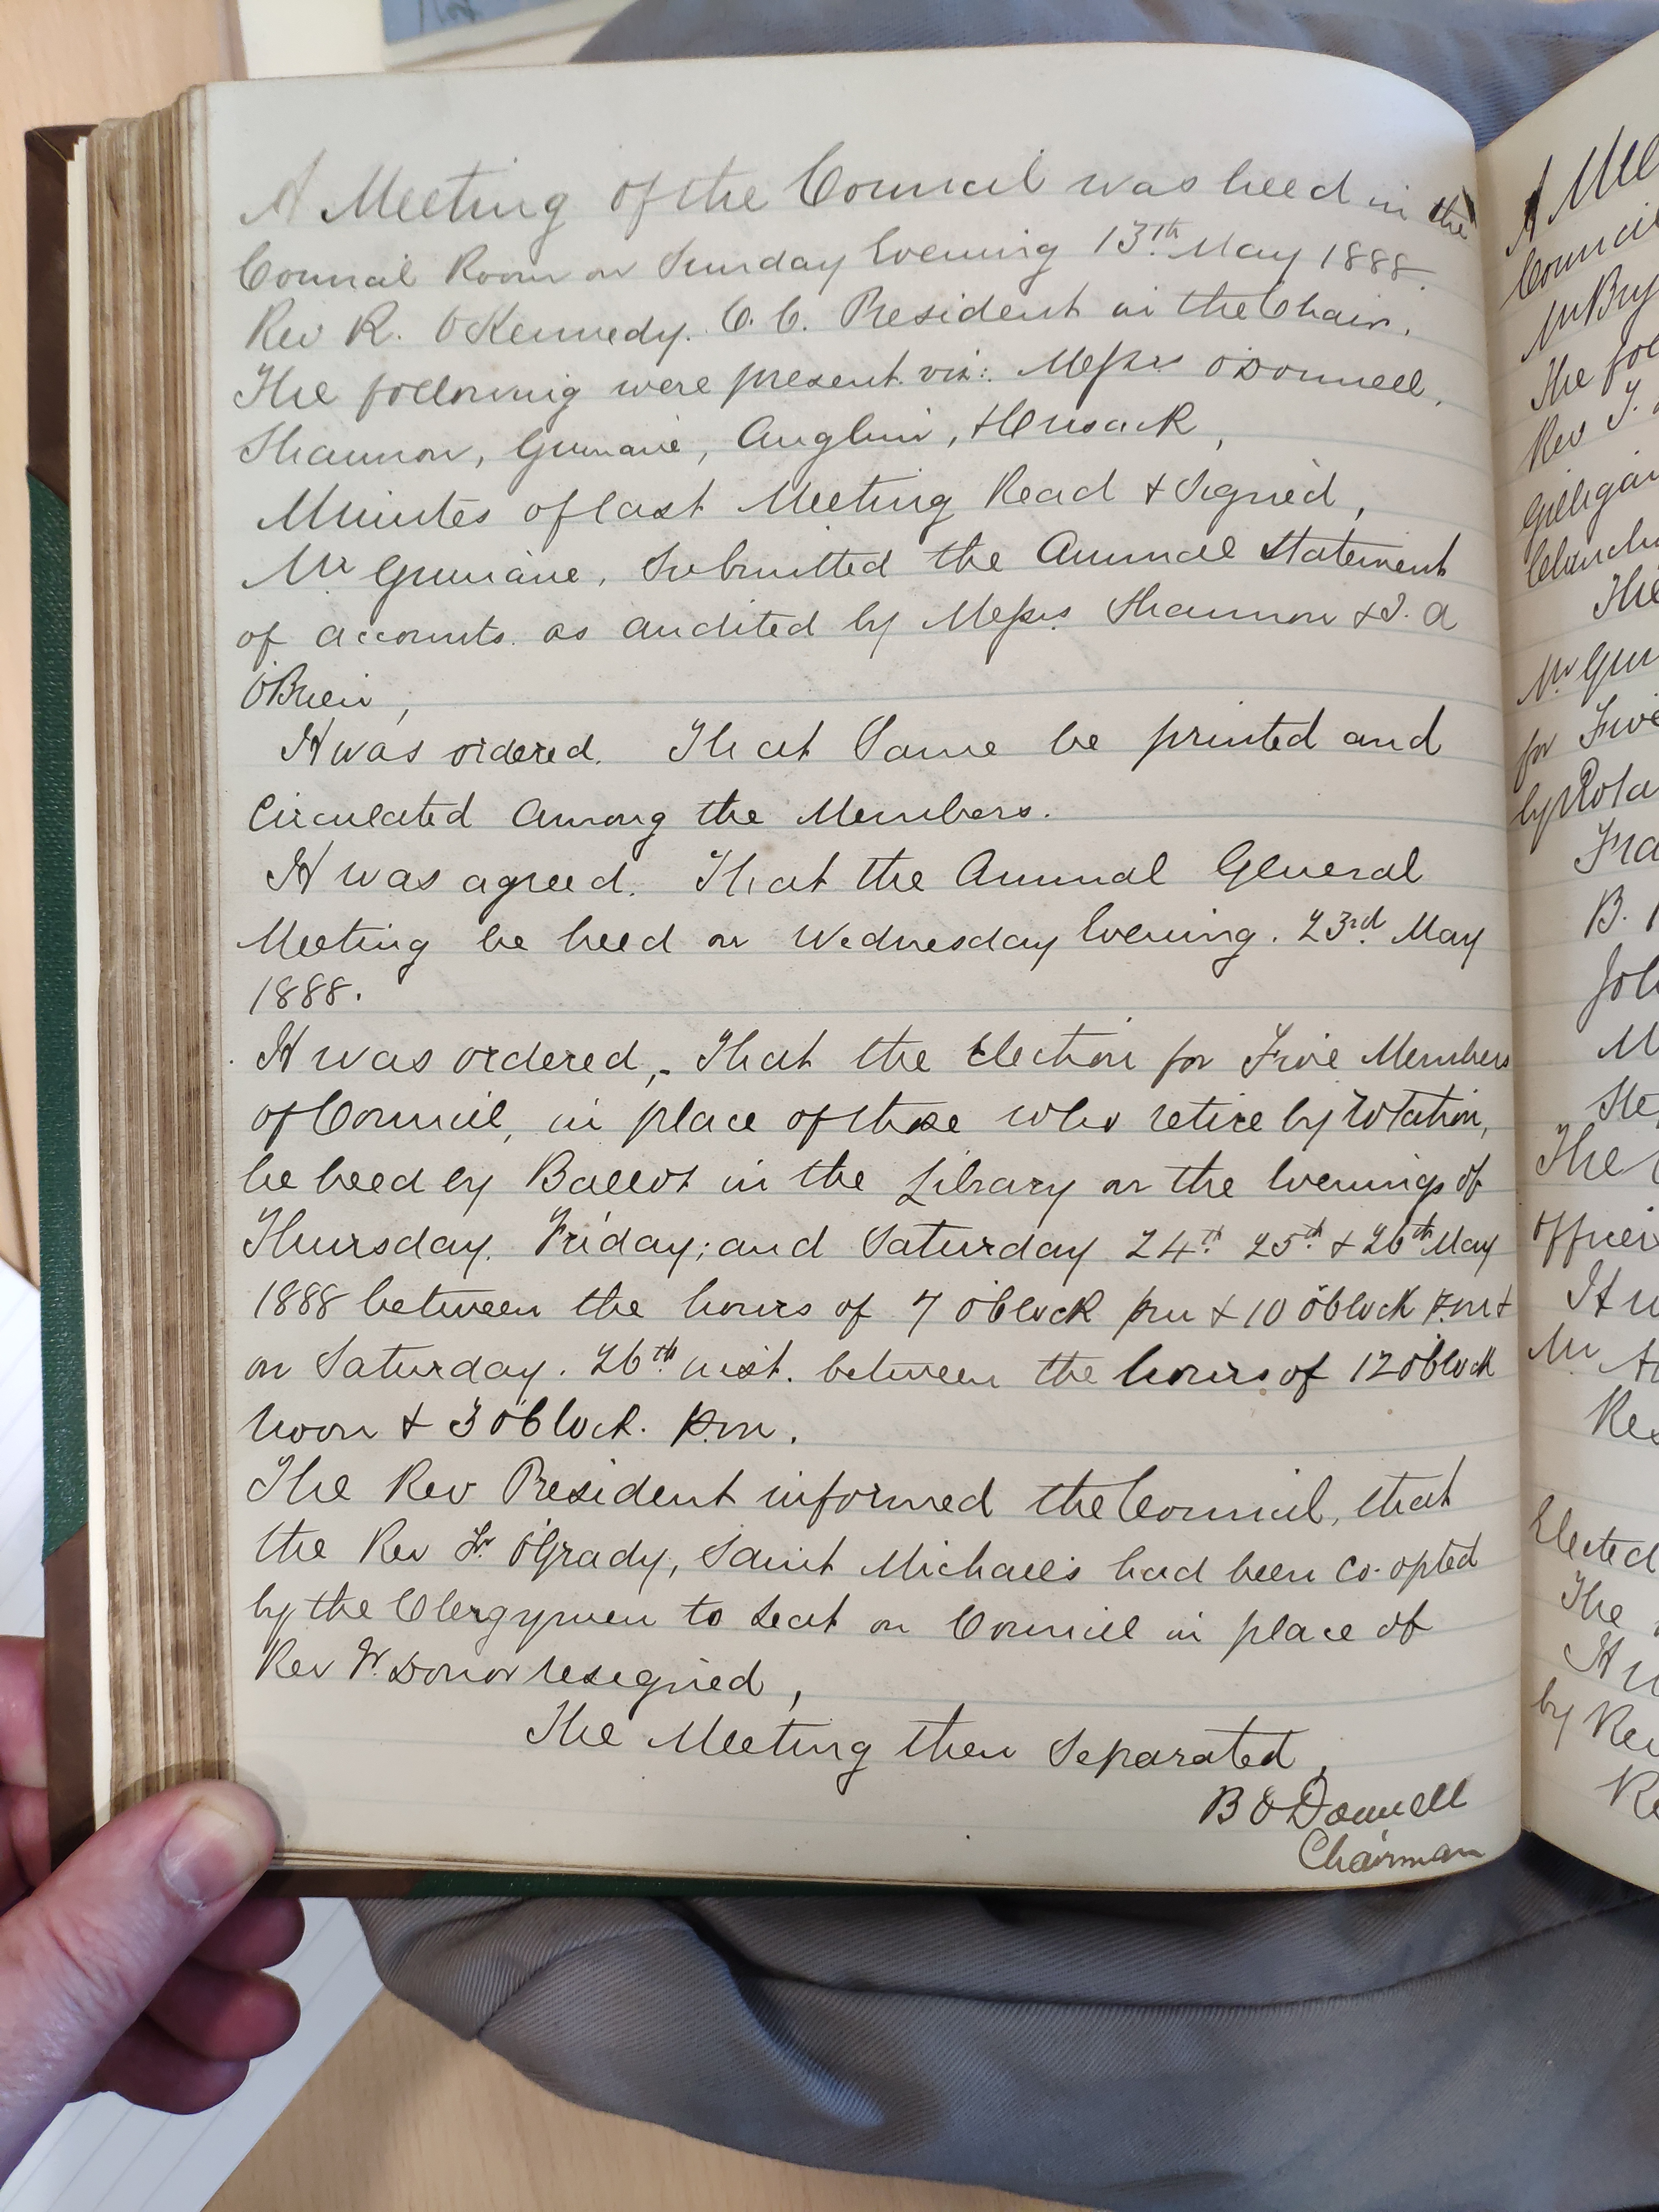 A Meeting of the Council was held in the
Council Room on Sunday Evening 13th May 1888.
Rev R. O'Kennedy. C. C. President in the Chair.
The following were present viz: Messrs O'Donnell,
Shannon, Guinane, Anglim, + Cusack,
Minutes of last Meeting Read + Signed,
Mr Guinane, Submitted the Annual Statement
of accounts as audited by Messrs Shannon + J. A
O'Brien,
It was ordered. That Same be printed and
Circulated Among the Members.
It was agreed. That the Annual General
Meeting be held on Wednesday Evening. 23rd May
1888.
It was ordered,- That the Election for Five Members
of Council, in place of those who retire by rotation,
be held by Ballot in the Library on the Evenings of
Thursday, Friday, and Saturday 24th 25th + 26th May
1888 between the hours of 7 O'Clock pm + 10 O'Clock P.m +
on Saturday. 26th inst. between the hours of 12 O'Clock
Noon + 3 O'Clock. P.m.
The Rev President informed the Council, that
the Rev Fr. O'Grady, Saint Michael's had been Co-opted
by the Clergymen to Seat on Council in place of
Rev Fr. Donor resigned,
The Meeting then Separated,
B O'Donnell
Chairman
A Mee
Council
Mr Bry
The fol
Rev T.
Gilligan
The
Mr Gui
for Five
by Rota
Fra
B.
Joh
M
Ste
The
Officer
It w
Mr
Rev
Elected
The
It w
by Rev
Re